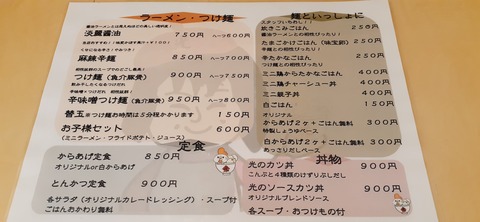 ラーメン・つけ麺
淡麗醤油 750円 ハーフ600円
麻辣辛麺 850円 ハーフ700円
つけ麺(魚介豚骨) 900円 ハーフ750円
辛味噌つけ麺(魚介豚骨) 950円 ハーフ800円
替玉 ※つけ麺お時間は5分程かかります 150円
お子様セット 600円
(ミニラーメン・フライドポテト・ジュース)
麺といっしょに
炊きこみごはん 250円
醤油ラーメンとの相性ぴったり!
たまごかけごはん(味玉卵) 200円
辛たかなごはん 250円
つけ麺との相性ぴったり!
ミニ鶏からたかなごはん 350円
ミニ鶏チャーシュー丼 400円
ミニ親子丼 400円
白ごはん 150円
オリジナル
からあげ2ヶ+ごはん無料 300円
特製しょうゆベース
白からあげ2ヶ+ごはん無料 300円
あっこだしベース
定食
からあげ定食 850円
オリジナルor白からあげ
とんかつ定食 900円
各サラダ(オリジナルカレードレッシング)・スープ付
ごはんおかわり無料
丼物
光のカツ丼 900円
こんぶと4種類のけずりぶしだし
光のソースカツ丼 900円
オリジナルブレンドソース
各スープ・おつけもの付